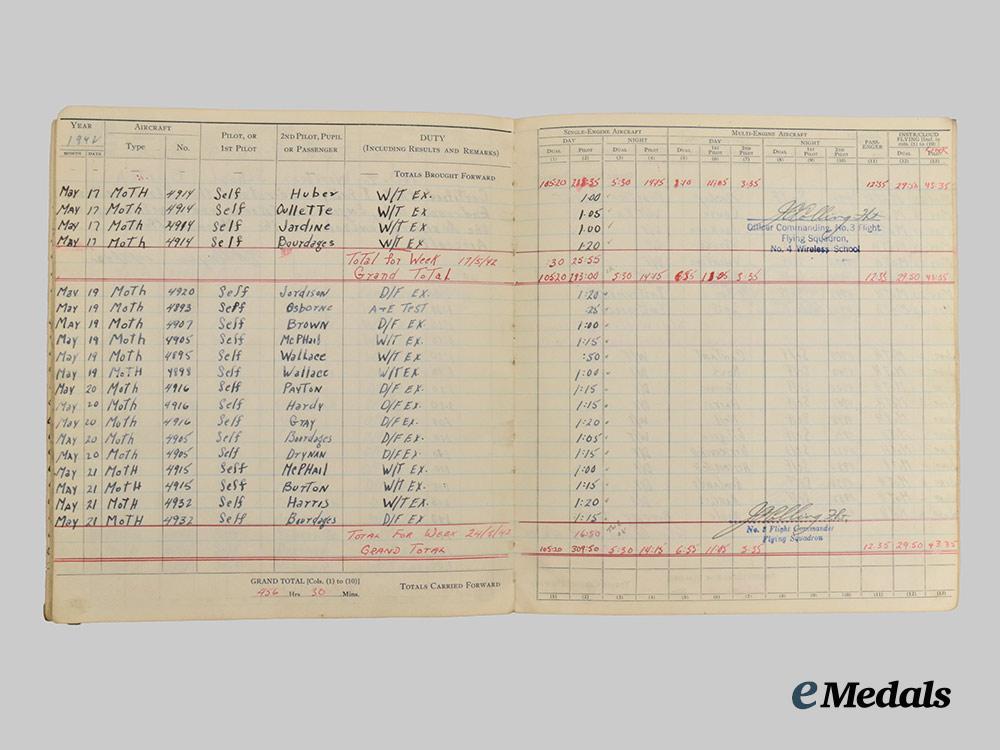 YEAR AIRCRAFT PILOT, OR 1ST PILOT 2ND PILOT, PUPIL OR PASSENGER DUTY (INCLUDING RESULTS AND REMARKS) SINGLE-ENGINE AIRCRAFT MULTI-ENGINE AIRCRAFT PASS-ENGER INSTR/CLOUD FLYING [Incl. in cols. (1) to (10)]
1942 DAY NIGHT DAY NIGHT
MONTH DATE Type No. DUAL PILOT DUAL PILOT DUAL 1ST PILOT 2ND PILOT DUAL 1ST PILOT 2ND PILOT DUAL PILOT
(1) (2) (3) (4) (5) (6) (7) (8) (9) (10) (11) (12) (13)
TOTALS BROUGHT FORWARD 105:20 5:30 14:15 11:05 3:35 12:35 43:35
May 17 MOTH 4914 Self Huber W/T EX. 1:00
MAY 17 MOTH 4914 Self Oullette W/T EX 1:05
May 17 MOTH Self Jardine W/T EX. 1:00
May 17 Moth 4914 Self Bourdages W/T EX 1:20
Total for Week 17/5/42 30 25:55
Grand Total 105:20 293:00 5:30 14:15 6:55 11:05 3:35 12:35 29:50 43:35
Officer Commanding, No.3 Flight.
Flying Squadron,
No. 4 Wireless School
May 19 MOTH 4920 Self Jordison D/F EX. 1:20
May 19 MoTH 4893 Self Osborne A+E TEST :25
MAY 19 Moth 4907 Self BROWN D/F EX. 1:00
May 19 Moth 4905 Self McPHail W/T EX. 1:15
May 19 Moth 4895 Self Wallace W/T EX :50
May 19 MOTH 4898 Self Wallace W/T EX 1:00
May 20 Moth 4916 Self PAYTON D/F EX. 1:15
May 20 Moth 4916 Self Hardy D/F EX. 1:15
May 20 Moth 4916 Self GRAY D/F EX. 1:20
MAY 20 Moth 4905 Self Bourdages D/F EX. 1:05
MAY 20 Moth 4905 Self DRYNAN D/F EX 1:15
May 21 MOTH 4915 Self McPHail W/T EX. 1:00
MAY 21 MOTH 4915 Self BURTON W/T EX. 1:15
MAY 21 MOTH 4932 Self Harris W/T EX. 1:20
May 21 MOTH 4932 Self Bourdages D/F EX 1:15
TOTAL FOR WEEK 24/5/42 16:50
GRAND TOTAL 105:20 309:50 5:30 14:15 6:55 11:05 3:35 12:35 29:50 43:35
No. 3 Flight Commander
Flying Squadron
GRAND TOTAL [Cols. (1) to (10)]
456 Hrs 30 Mins.
TOTALS CARRIED FORWARD
(1) (2) (3) (4) (5) (6) (7) (8) (9) (10) (11) (12) (13)
eMedals